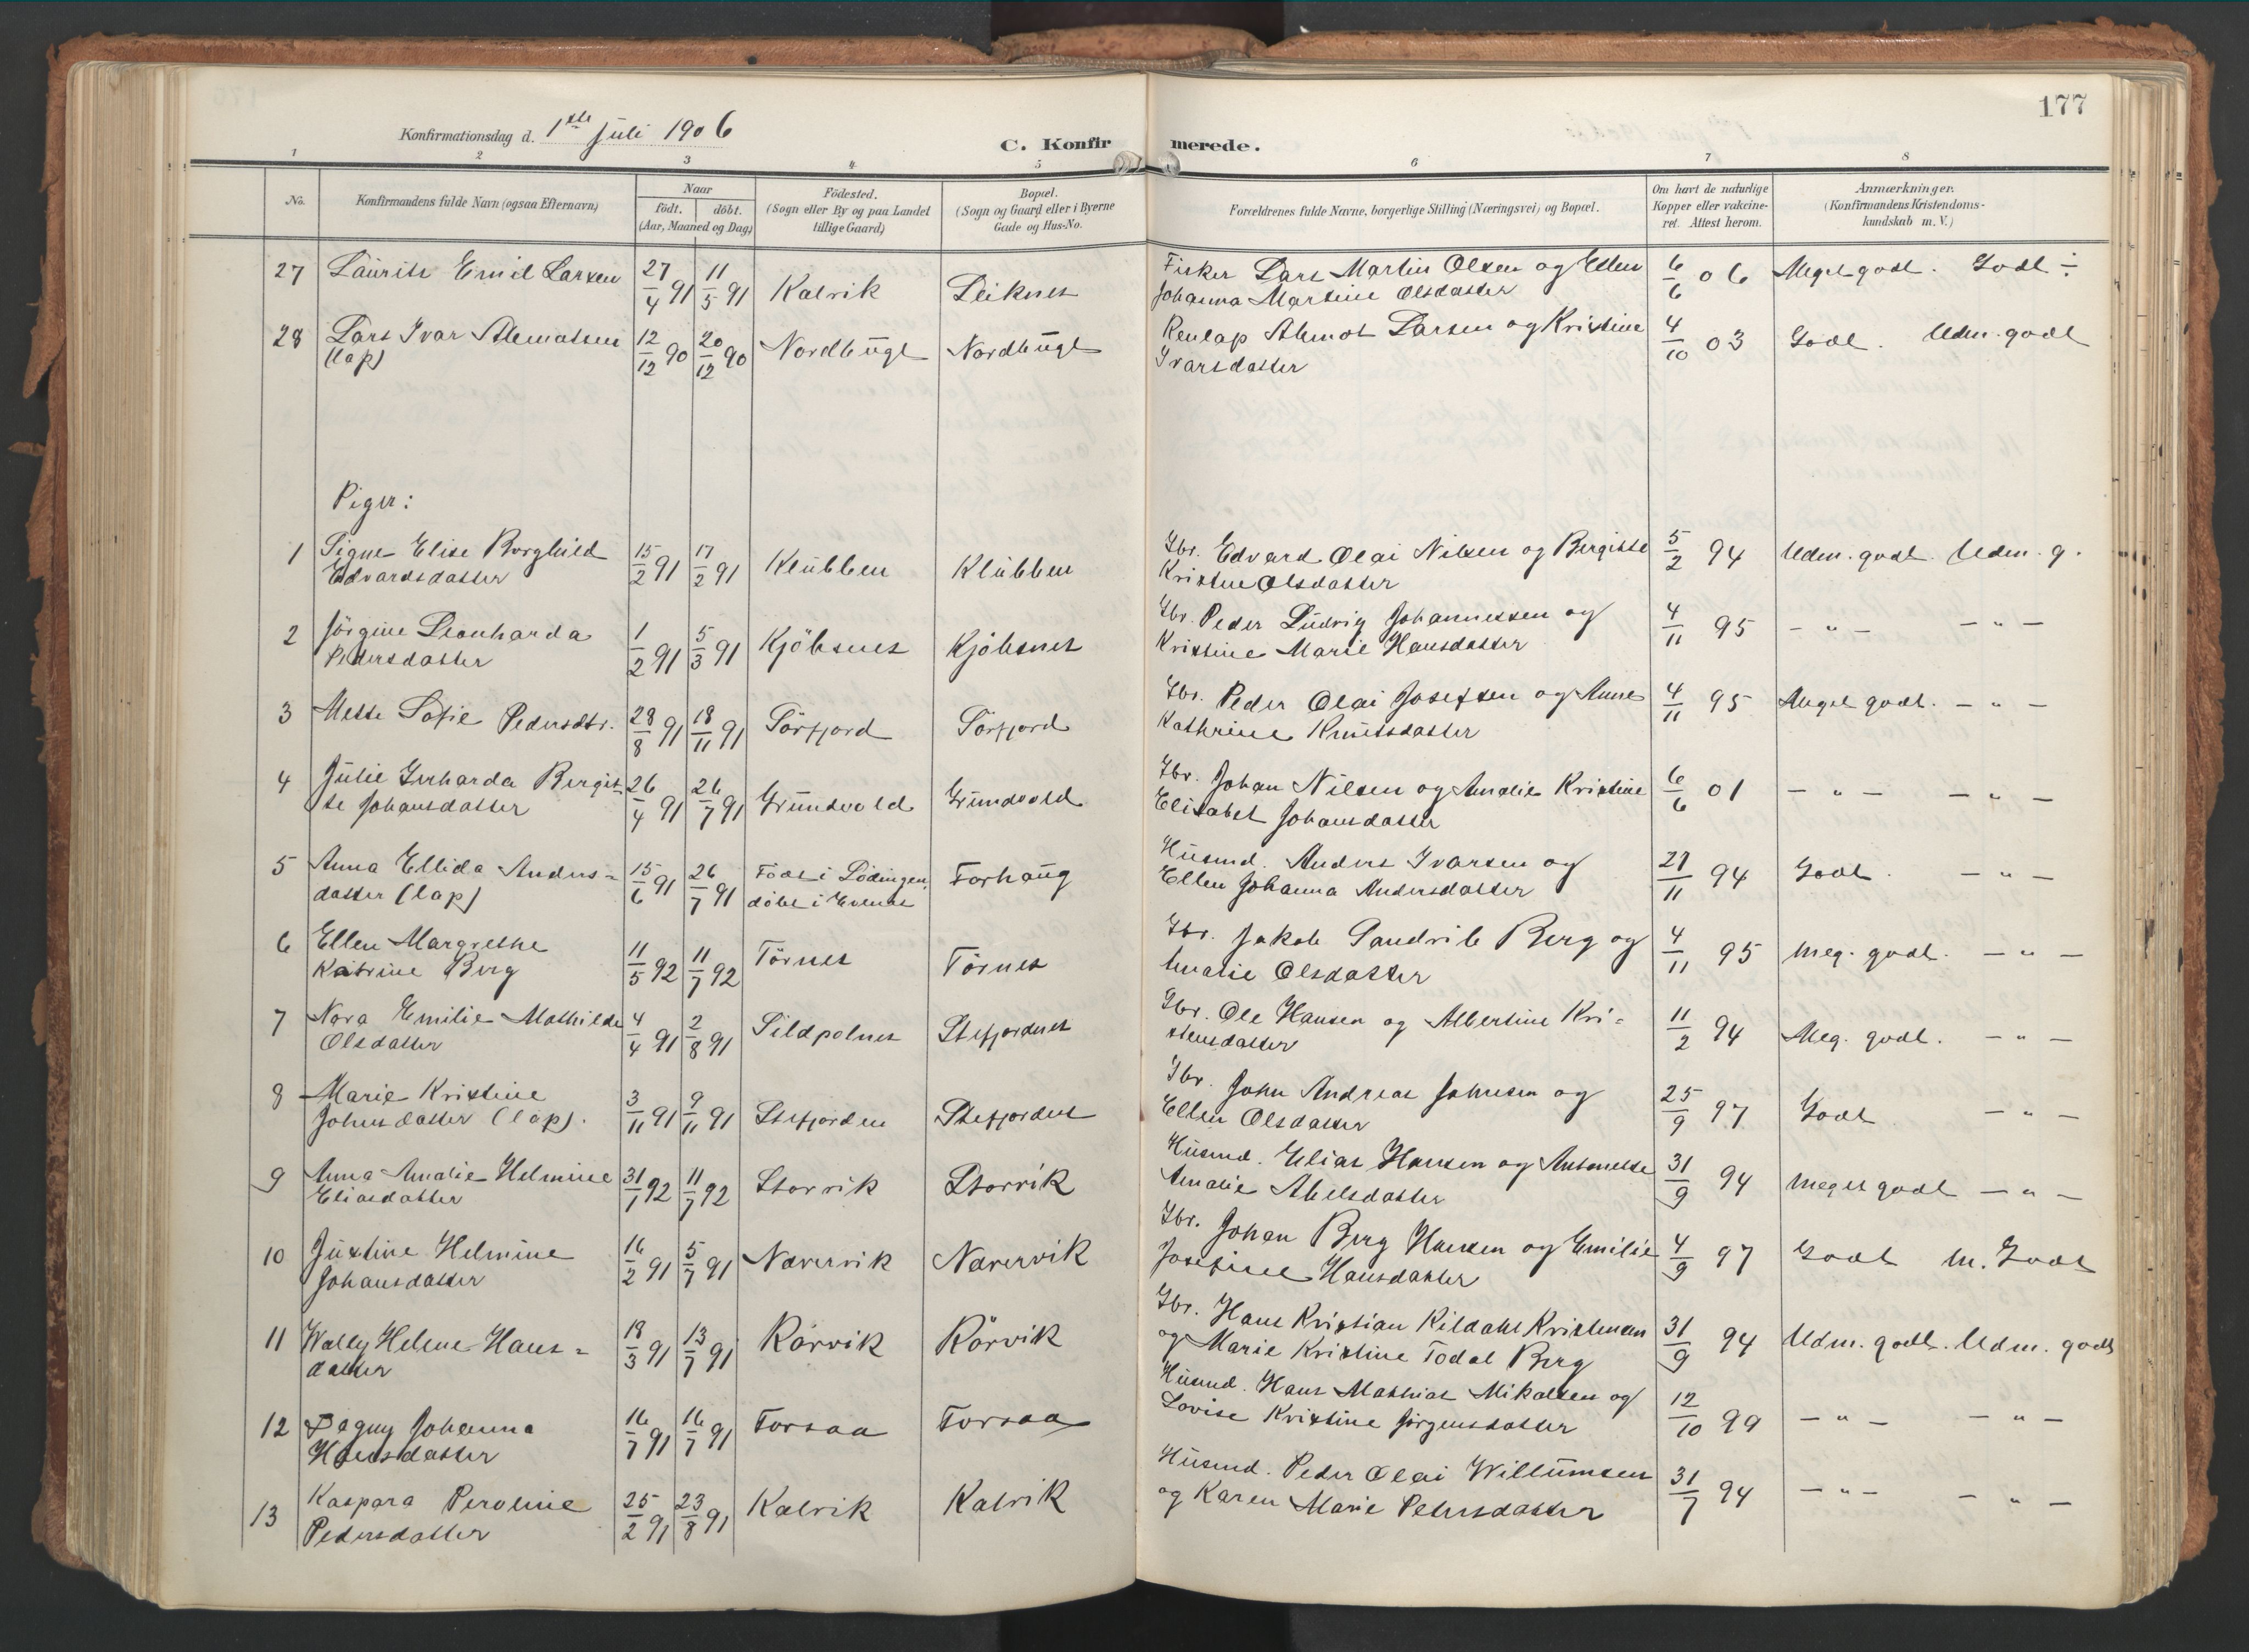 177
Konfirmationsdag d. 1ste Juli 1906
C. Konfirmerede.
1 2 3 4 5 6 7 8
No. Konfirmandens fulde Navn (ogsaa Efternavn) Naar født. døbt. (Aar, Maaned og Dag) Födested. (Sogn eller By og paa Landet tillige Gaard) Bopæl. (Sogn og Gaard eller i Byerne Gade og Hus-No. Forældrenes fulde Navne, borgerlige Stilling (Næringsvei) og Bopæl. Om havt de naturlige Kopper eller vakcineret. Attest herom. Anmærkninger. (Konfirmandens Kristendomskundskab m. V.)
27 Laurits Emil Larsen 27/4 91 11/5 91 Kalvik Leiknes Fisker Lars Martin Olsen og Ellen
Johanna Martine Olsdatter 6/6 06 Meget godt. Godt ÷
28 Lars Ivar Abmotsen 12/12 90 20/12 90 Nordbugt Nordbugt Renlap Abmot Larsen og Kristine
(lap) Ivarsdatter 4/10 03 Godt. Udm. godt
Piger:
1 Signe Elise Borghild 15/2 91 17/2 91 Klubben Klubben Gbr. Edvard Olai Nilsen og Bergitte 5/2 94 Udm. godt. Udm. g.
Edvardsdatter Kristine Olsdatter
2 Jörgine Leonharda 1/2 91 5/3 91 Kjöbsnes Kjöbsnes Gbr. Peder Ludvig Johannessen og 4/11 95 — " — — " —
Pedersdatter Kristine Marie Hansdatter
3 Mette Sofie Pedersdtr. 28/8 91 18/11 91 Sörfjord Sörfjord Gbr. Peder Olai Josefsen og Anne 4/11 95 Meget godt. — " —
Kathrine Knutsdatter
4 Julie Gerharda Bergit- 26/4 91 26/7 91 Grundvold Grundvold Gbr. Johan Nilsen og Amalie Kristine 6/6 01 — " — — " —
te Johansdatter Elisabet Johansdatter
5 Anna Ellida Anders= 15/6 91 26/7 91 Födt i Lödingen, Forhaug Husmd. Anders Ivarsen og 27/11 94 Godt. — " —
datter (lap) döbt i Evenes Ellen Johanna Andersdatter
6 Ellen Margrethe 11/5 92 11/7 92 Törnes Törnes Gbr. Jakob Sandvik Berg og 4/11 95 meg. godt. — " —
Katrine Berg Amalie Olsdatter
7 Nora Emilie Mathilde 4/4 91 2/8 91 Sildpolnes Stefjordnes Gbr. Ole Hansen og Albertine Kri= 11/2 94 Meg. godt. — " —
Olsdatter stensdatter
8 Marie Kristine 3/11 91 9/11 91 Stefjorden Stefjorden Gbr. John Andreas Johnsen og 25/9 97 Godt — " —
Johnsdatter (lap). Ellen Olsdatter
9 Anna Amalie Helmine 31/1 92 11/7 92 Storvik Storvik Husmd. Elias Hansen og Antonette 31/9 94 meget godt — " —
Eliasdatter Amalie Abelsdatter
10 Justine Helmine 16/2 91 5/7 91 Narervik Narervik Gbr. Johan Berg Hansen og Emilie 4/9 97 Godt m. Godt
Johansdatter Josefine Hansdatter
11 Wally Helene Hans= 18/3 91 13/7 91 Rörvik Rörvik Gbr. Hans Kristian Kildahl Kristensen 31/9 94 Udm. godt. Udm. godt
datter og Marie Kristine Todal Berg
12 Dagny Johanna 16/7 91 16/7 91 Forsaa Forsaa Husmd. Hans Mathias Mikalsen og 12/10 99 — " — — " —
Hansdatter Lovise Kristine Jörgensdatter
13 Kaspara Peroline 25/2 91 23/8 91 Kalvik Kalvik Husmd. Peder Olai Willumsen 31/7 94 — " — — " —
Pedersdatter og Karen Marie Petersdatter